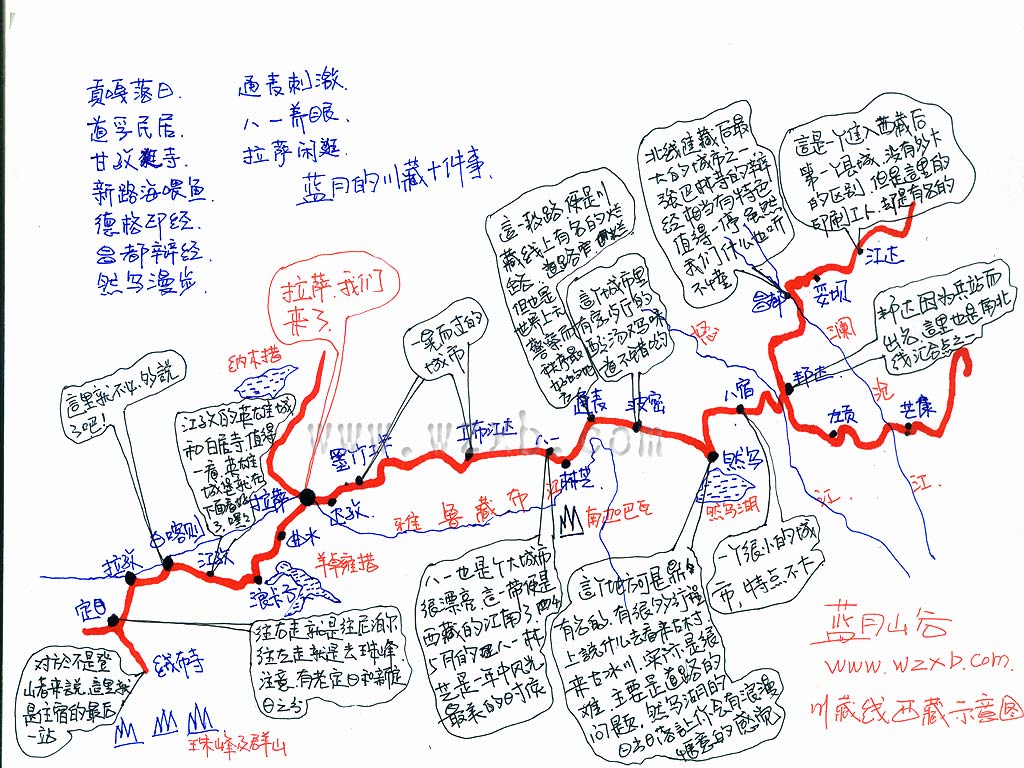 貢嘎落日.
道孚民居.
甘孜逛寺
新路海喂鱼
德格印经.
昌都辩经
然乌漫步.
通麦刺激.
八一养眼.
拉萨闲逛.
蓝月的川藏十件事.
拉萨.我们
来了.
這里就不必多说
了吧!
江孜的英雄城
和白居寺值得
一看,英雄
城是我在
一晃而过的
城市
這一段路,便是川
藏线上有名的烂
路
但也是
世界上
這个城市里
北线进藏后最
大的城市之一
强巴林寺的辩
经相当有特色
值得一停,虽然
我们什么也听
不懂
這是一个进入西藏后
第一个县城,没有外太
的区别.但是這里的
印制工人.却是有名的
邦达因为兵站而
出名.這里也是南北
线汇合点之一
一个很小的城
市,特点不大
這个地方可是鼎鼎
有名的,有很多行程
上说什么去看来古村
来古冰川.实际是很
难.主要是道路的
问题.然乌湖的
日出日落让什会有浪漫
惬意的感觉
八一也是个大城市
很漂亮.這一带便是
西藏的江南了.四
5月的八一林
芝是一年中风光
最美的时候
往右走就是往尼泊尔
往左走就是去珠峰
注意.有老定日和新定
日之分
对於不是登
山者来说.這里就
是住宿的最后
一站
纳木措
拉萨
墨竹工卡
达孜
曲水
羊卓雍措
浪卡子
江孜
日喀则
拉孜
定日
绒布寺
珠峰及群山
工布江达
八一
林芝
南迦巴瓦
雅鲁藏布江
通麦
波密
然乌
然乌湖
八宿
邦达
左贡
芒康
昌都
妥坝
江达
怒
江.
澜
沧
江.
www.wzxb.com
蓝月山谷
www.wzxb.com.
川藏线西藏示意图